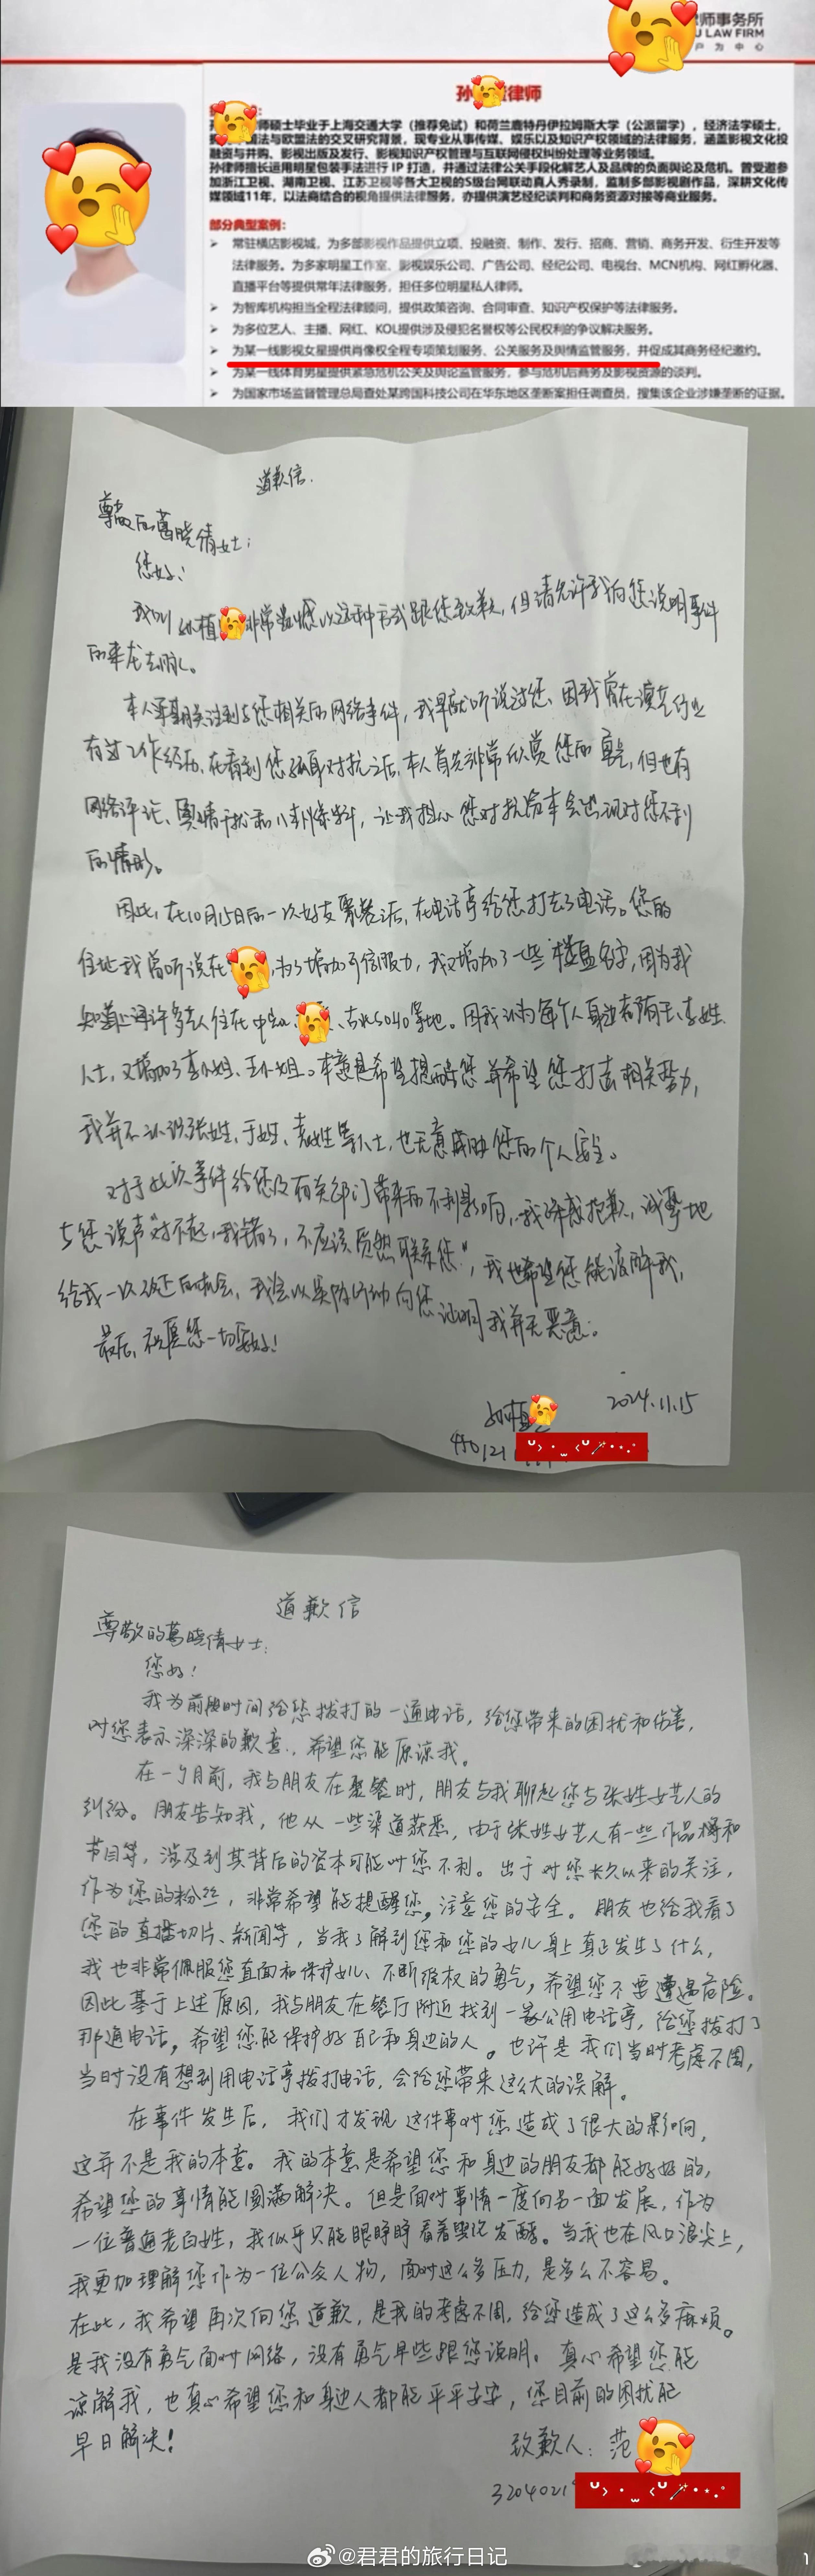 律师事务所
U LAW FIRM
户 为 中 心
孙 律师
师硕士毕业于上海交通大学（推荐免试）和荷兰鹿特丹伊拉姆斯大学（公派留学），经济法学硕士，
法与欧盟法的交叉研究背景，现专业从事传媒、娱乐以及知识产权领域的法律服务，涵盖影视文化投
融资与并购、影视出版及发行、影视知识产权管理与互联网侵权纠纷处理等业务领域。
孙律师擅长运用明星包装手法进行 IP 打造，并通过法律公关手段化解艺人及品牌的负面舆论及危机。曾受邀参
加浙江卫视、湖南卫视、江苏卫视等各大卫视的S级台网联动真人秀录制，监制多部影视剧作品，深耕文化传
媒领域11年，以法商结合的视角提供法律服务，亦提供演艺经纪谈判和商务资源对接等商业服务。
部分典型案例：
➢ 常驻横店影视城，为多部影视作品提供立项、投融资、制作、发行、招商、营销、商务开发、衍生开发等
法律服务。为多家明星工作室、影视娱乐公司、广告公司、经纪公司、电视台、MCN机构、网红孵化器、
直播平台等提供常年法律服务，担任多位明星私人律师。
➢ 为智库机构担当全程法律顾问，提供政策咨询、合同审查、知识产权保护等法律服务。
➢ 为多位艺人、主播、网红、KOL提供涉及侵犯名誉权等公民权利的争议解决服务。
➢ 为某一线影视女星提供肖像权全程专项策划服务、公关服务及舆情监管服务，并促成其商务经纪邀约。
➢ 为某一线体育男星提供紧急危机公关及舆论监管服务，参与危机后商务及影视资源的谈判。
➢ 为国家市场监督管理总局查处某跨国科技公司在华东地区垄断案担任调查员，搜集该企业涉嫌垄断的证据。
道歉信.
尊敬的葛晓倩女士：
您好！
我叫孙植 非常遗憾以这种方式跟您致歉，但请允许我向您说明事件
的来龙去脉。
本人早期关注到与您相关的网络事件，我早就听说过您、因我曾在演艺行业
有过工作经历、在看到您孤身对抗之后，本人首先非常欣赏您的勇气，但也有
网络评论、舆情干扰和八卦爆料，让我担心您对抗后会出现对您不利
的情形。
因此，在10月15日的一次好友聚餐之后，在电话亭给您打去了电话。您的
住址我曾听说在 ，为了增加可信服力，我又增加了一些楼盘名字，因为我
知道上海许多艺人住在中 、 、古北SOHO等地。因我认为每个人身边都有王、李姓
人士，又增加了李小姐、王小姐。本意是希望提醒您并希望您打击相关势力，
我并不认识张姓、于姓、袁姓等人士，也无意威胁您的个人安全。
对于此次事件给您及有关部门带来的不利影响，我深感抱歉，诚挚地
与您说声“对不起，我错了，不应该贸然联系您”，我也希望您能谅解我，
给我一次改正的机会，我会以实际行动向您证明我并无恶意。
最后，祝愿您一切安好！
孙植 2024.11.15
450121
道歉信
尊敬的葛晓倩女士：
您好！
我为前段时间给您拨打的一通电话，给您带来的困扰和伤害，
对您表示深深的歉意，希望您能原谅我。
在一个月前，我与朋友在聚餐时，朋友与我聊起您与张姓女艺人的
纠纷。朋友告知我，他从一些渠道获悉，由于张姓女艺人有一些作品和
节目等，涉及到其背后的资本可能对您不利。出于对您长久以来的关注，
作为您的粉丝，非常希望能提醒您，注意您的安全。朋友也给我看了
您的直播切片、新闻等，当我了解到您和您的女儿身上真正发生了什么，
我也非常佩服您直面和保护女儿、不断维权的勇气，希望您不要遭遇危险。
因此基于上述原因，我与朋友在餐厅附近找到一家公用电话亭，给您拨打了
那通电话，希望您能保护好自己和身边的人。也许是我们当时考虑不周，
当时没有想到用电话亭拨打电话，会给您带来这么大的误解。
在事件发生后，我们才发现这件事对您造成了很大的影响，
这并不是我的本意。我的本意是希望您和身边的朋友都能好好的，
希望您的事情能圆满解决。但是面对事情一度向另一面发展，作为
一位普通老百姓，我似乎只能眼睁睁看着舆论发酵。当我也在风口浪尖上，
我更加理解您作为一位公众人物，面对这么多压力，是多么不容易。
在此，我希望再次向您道歉，是我的考虑不周，给您造成了这么多麻烦。
是我没有勇气面对网络，没有勇气早些跟您说明。真心希望您能
谅解我，也真心希望您和身边人都能平平安安，您目前的困扰能
早日解决！
致歉人：范
3204021
@君君的旅行日记